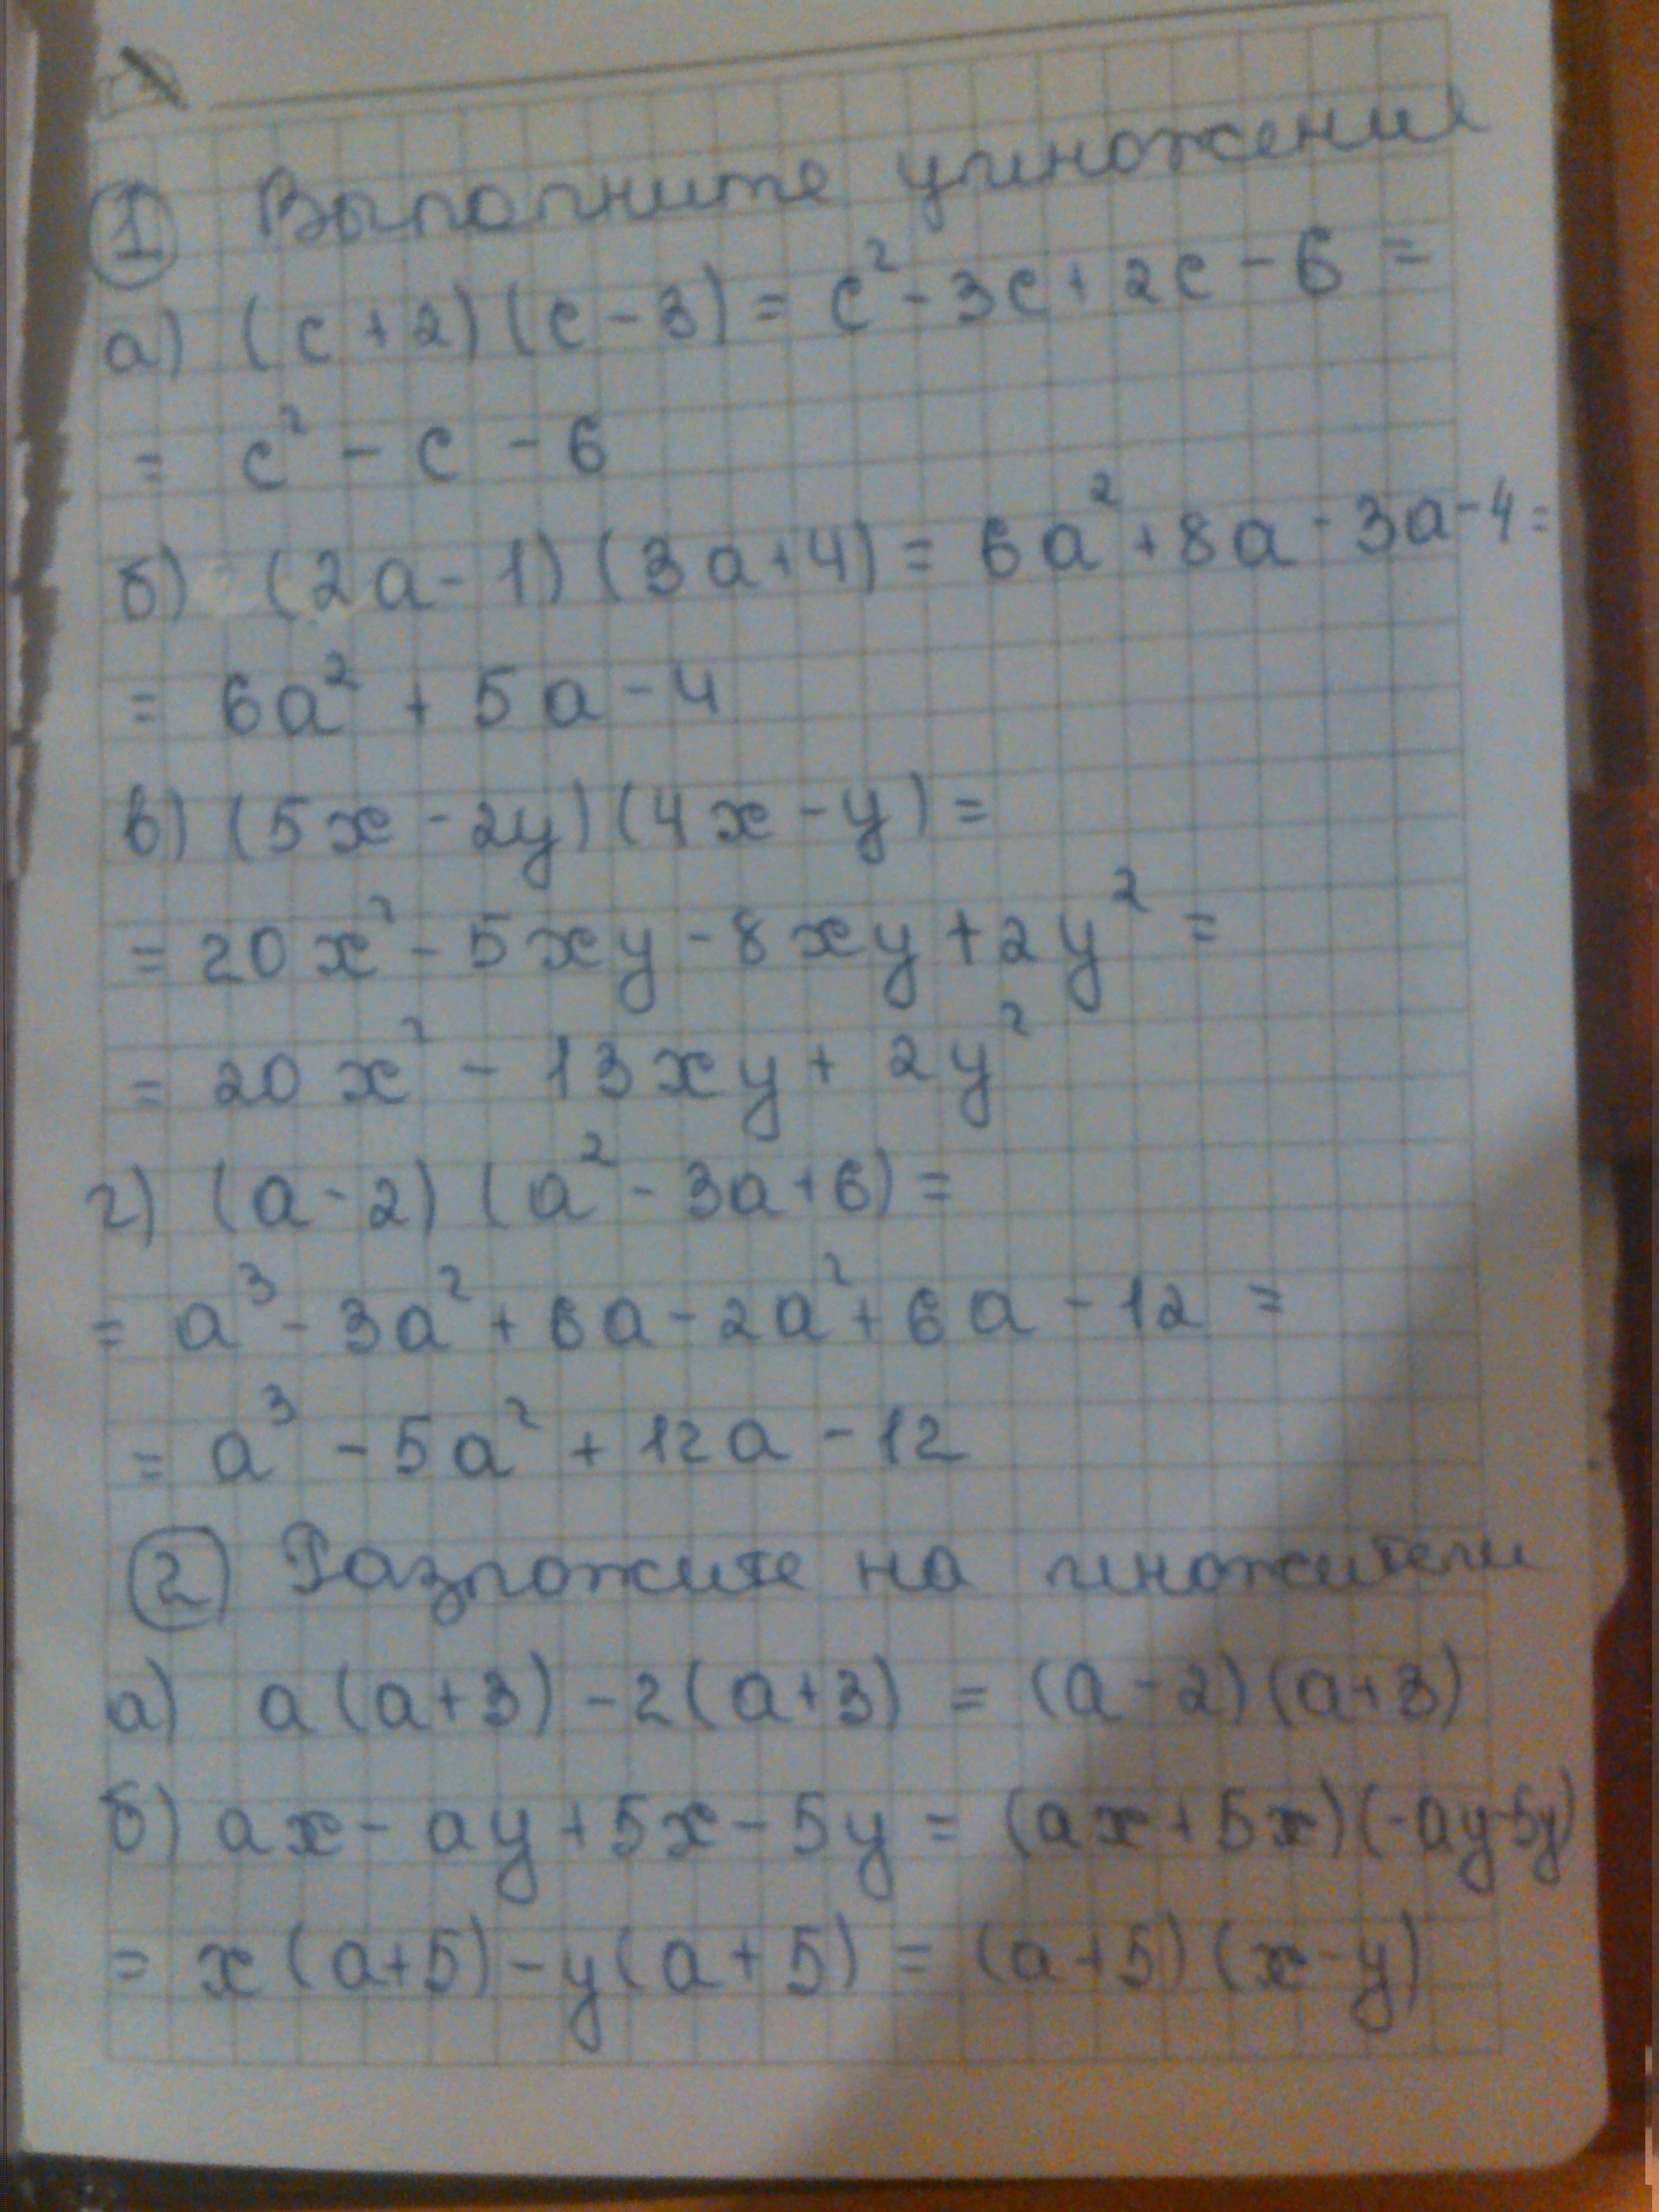 ① Выполните умножение
а) (c + 2)(c - 3) = c² - 3c + 2c - 6 =
= c² - c - 6
б) (2a - 1)(3a + 4) = 6a² + 8a - 3a - 4 =
= 6a² + 5a - 4
в) (5x - 2y)(4x - y) =
= 20x² - 5xy - 8xy + 2y² =
= 20x² - 13xy + 2y²
г) (a - 2)(a² - 3a + 6) =
= a³ - 3a² + 6a - 2a² + 6a - 12 =
= a³ - 5a² + 12a - 12
② Разложите на множители
а) a(a + 3) - 2(a + 3) = (a - 2)(a + 3)
б) ax - ay + 5x - 5y = (ax + 5x)(-ay-5y)
= x(a+5) - y(a + 5) = (a + 5)(x - y)